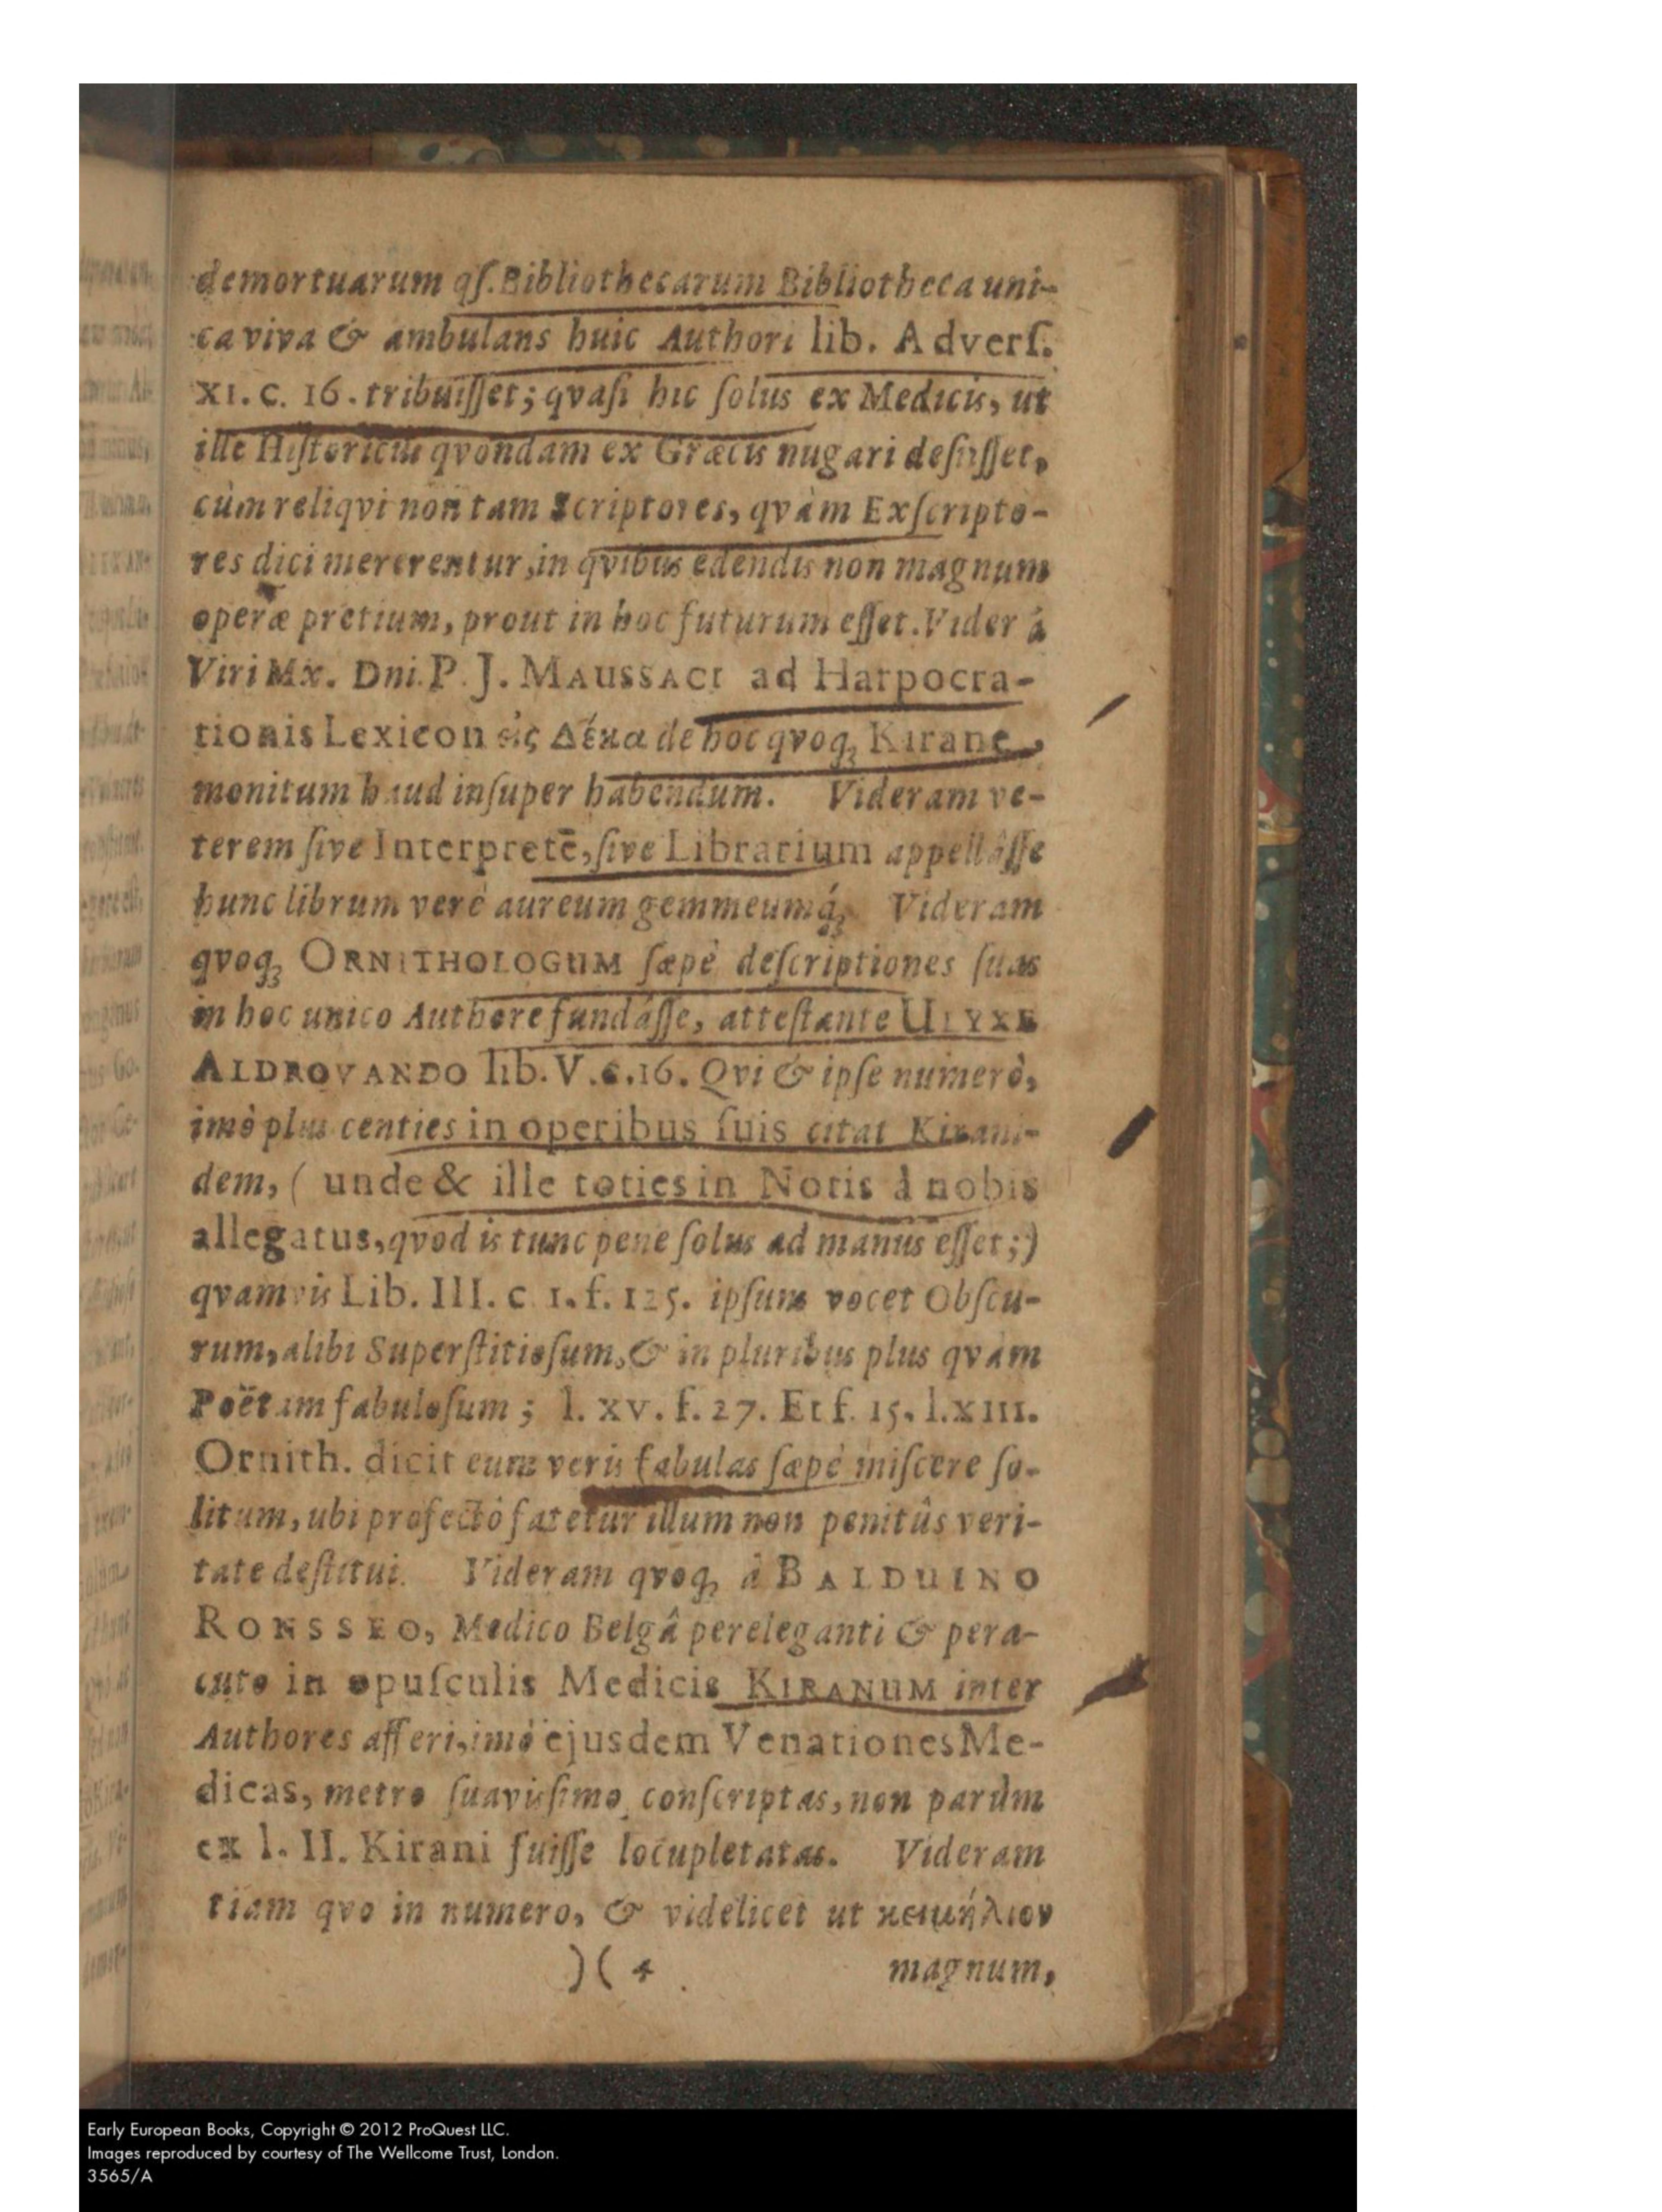 demortuarum qſ. Bibliothecarum Bibliotheca uni-
ca viva & ambulans huic Authori lib. Adverſ.
XI. c. 16. tribuiſſet; qvaſi hic ſolus ex Medicis, ut
ille Hiſtoricus qvondam ex Græcis nugari deſiiſſet,
cùm reliqvi non tam Scriptores, qvàm Exſcripto-
res dici mererentur, in qvibus edendis non magnum
operæ pretium, prout in hoc futurum eſſet. Videram
Viri Mx. Dni. P. J. MAUSSACI ad Harpocra-
tionis Lexicon εἰς Δέκα de hoc qvoq; Kirane,
monitum haud inſuper habendum. Videram ve-
terem ſive Interpretē, ſive Librarium appellâſſe
hunc librum verè aureum gemmeumq́;. Videram
qvoq; ORNITHOLOGUM ſæpè deſcriptiones ſuas
in hoc unico Authore fundâſſe, atteſtante ULYXE
ALDROVANDO lib. V. c. 16. Qvi & ipſe numerò,
imò plus centies in operibus ſuis citat Kirani-
dem, ( unde & ille toties in Notis à nobis
allegatus, qvod is tunc penè ſolus ad manus eſſet;)
qvamvis Lib. III. c. 1. f. 125. ipſum vocet Obſcu-
rum, alibi Superſtitioſum, & in pluribus plus qvàm
Poëtam fabuloſum; l. XV. f. 27. Et f. 15. l. XIII.
Ornith. dicit eum veris fabulas ſæpè miſcere ſo-
litum, ubi profectò fatetur illum non penitûs veri-
tate deſtitui. Videram qvoq; à BALDUINO
RONSSEO, Medico Belgâ pereleganti & pera-
cuto in opuſculis Medicis KIRANUM inter
Authores aſſeri, imò ejusdem Venationes Me-
dicas, metro ſuaviſſimo conſcriptas, non parùm
ex l. II. Kirani fuiſſe locupletatas. Videram
etiam qvo in numero, & videlicet ut κειμήλιον
)( 4 magnum,
Early European Books, Copyright © 2012 ProQuest LLC.
Images reproduced by courtesy of The Wellcome Trust, London.
3565/A